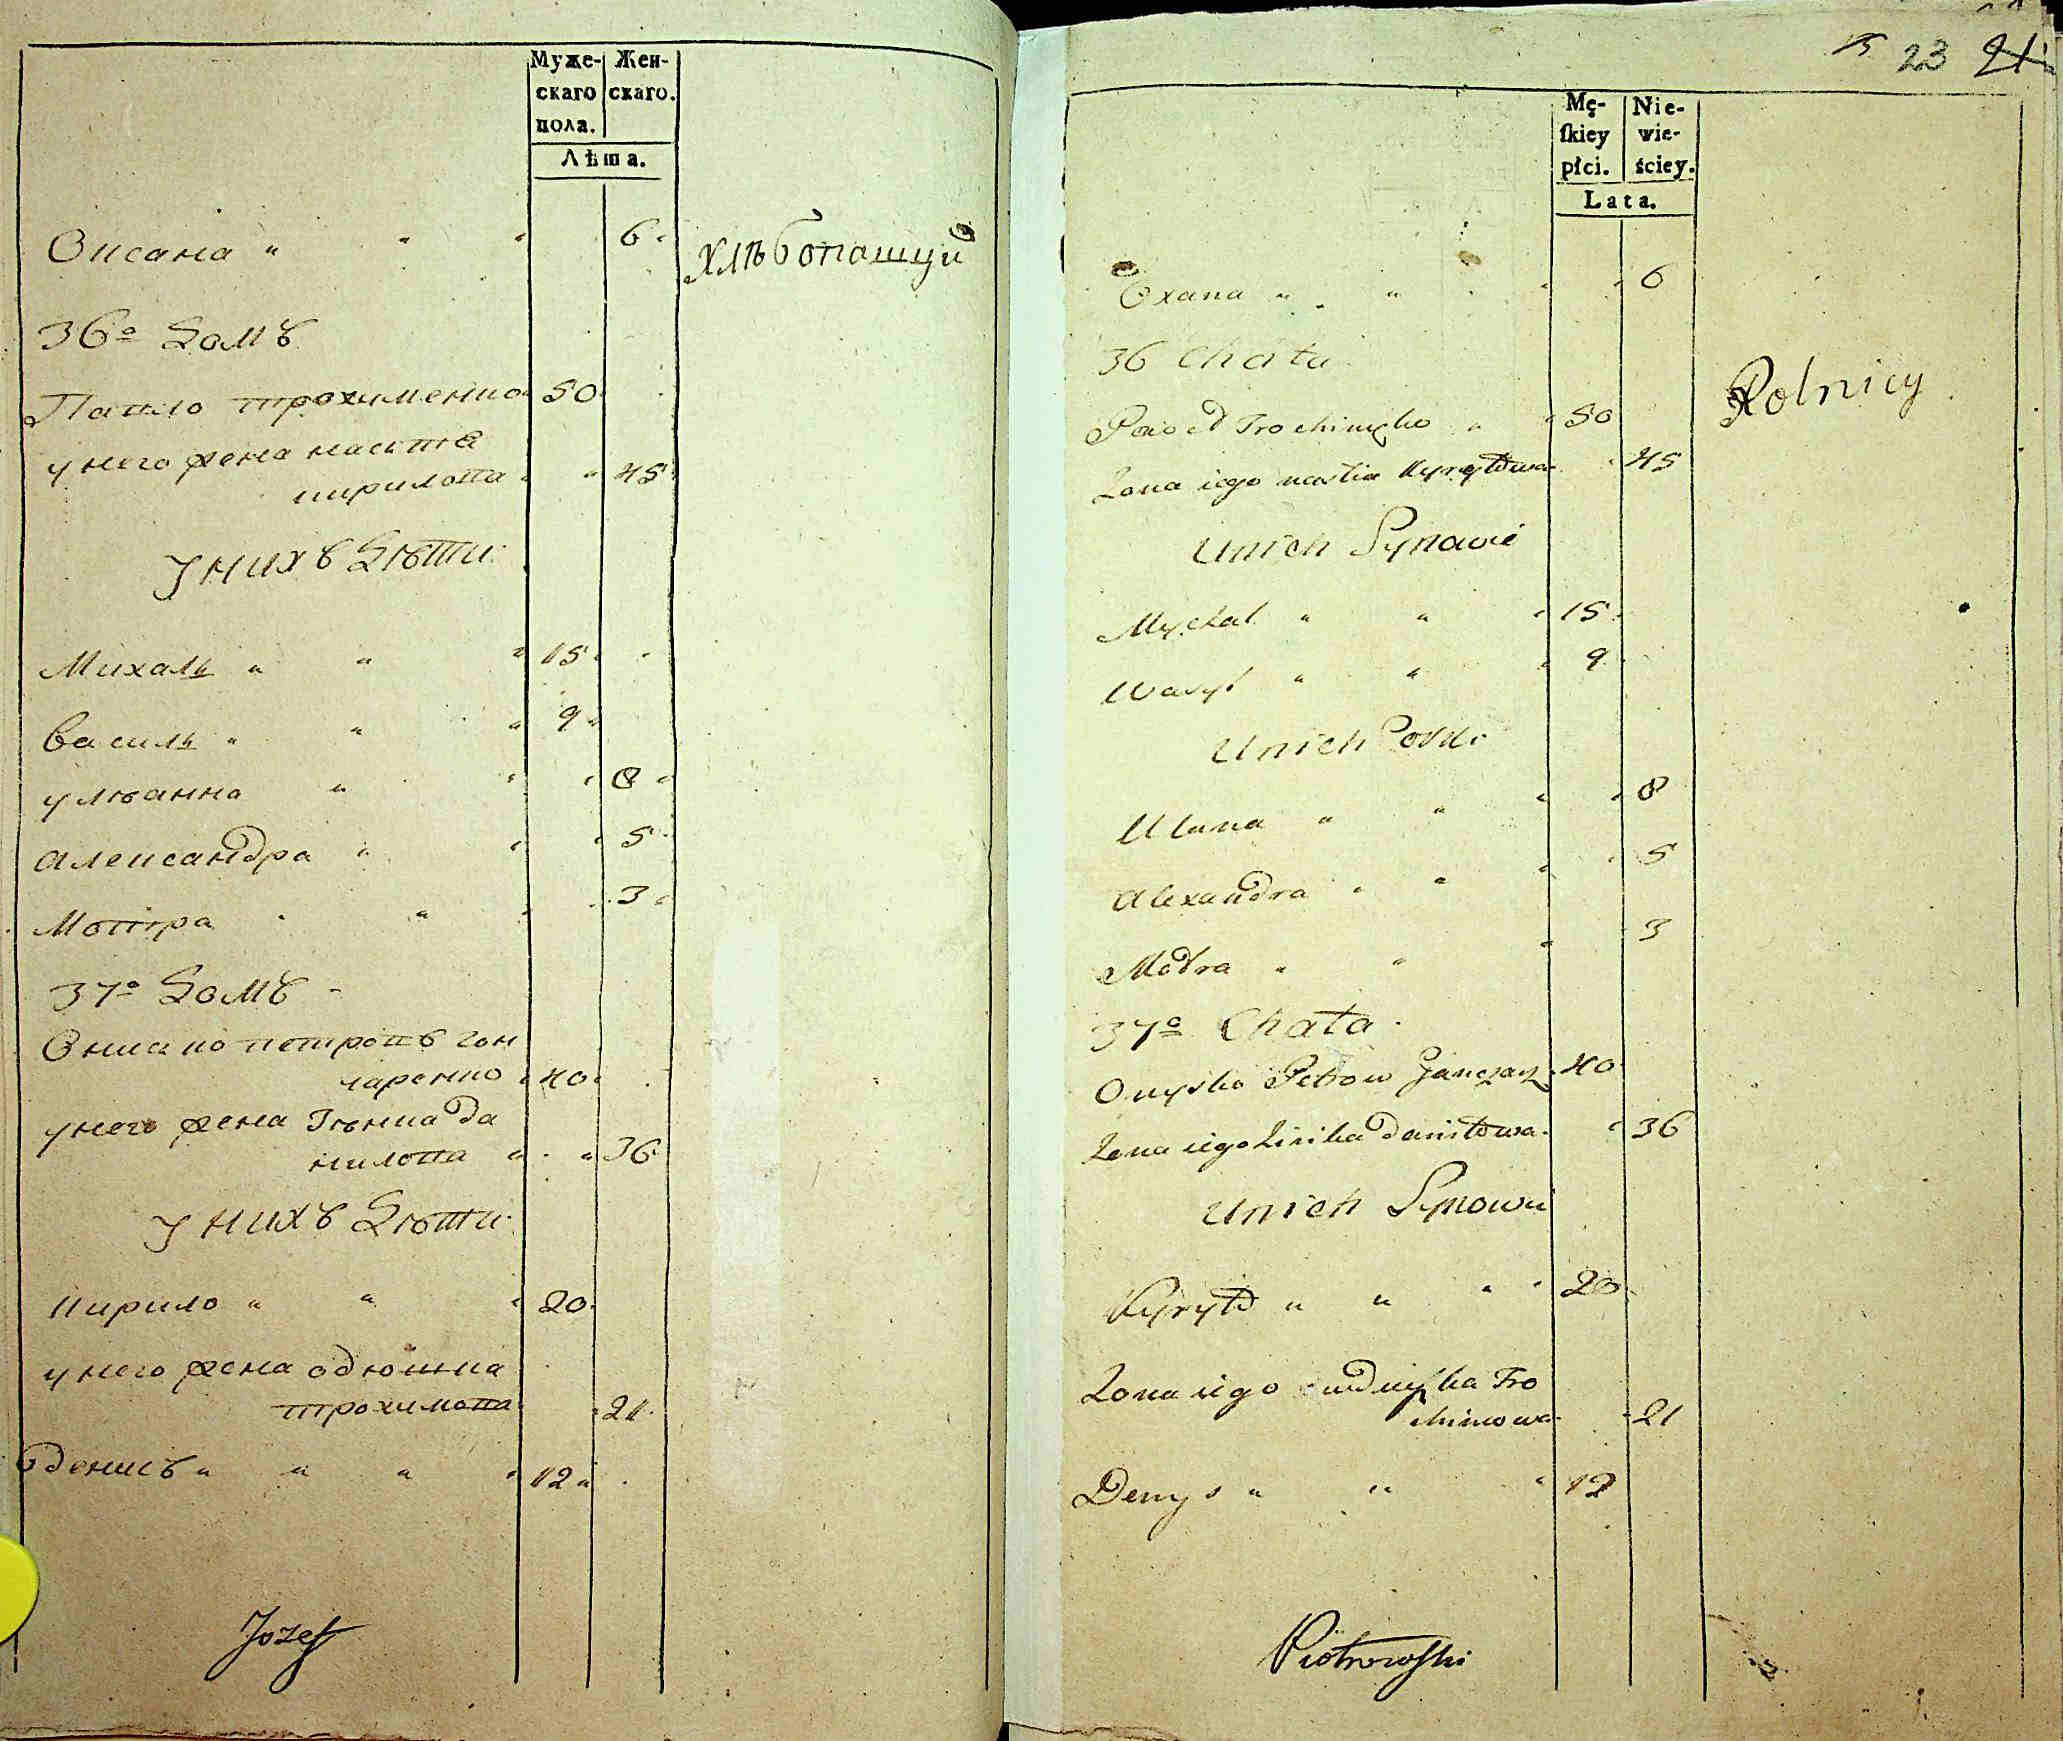 Муже- Жен-
скаго скаго.
пола.
Лѣта.
Оксана " " " 6
хлѣбопашцы
36º Домъ
Павло трохименко 50
у него жена насътя
кирилова " 45
У нихъ Дѣти
Михаль " " " 15
василь " " " 9
улѣанна " " " 8
александра " " " 5
Мотра " " 3
37º Домъ
Онисько петровъ гон
чаренко 40
у него жена Зѣнка да
нилова " " 36
У нихъ Дѣти
кирило " " " 20
у него жена одюшка
трохимова 21
денисъ " " " " 12
Jozef
23 21
Mę- Nie-
skiey wie-
płci. ściey.
Lata.
Oxana " " 6
36 Chata
Paweł Trochimęko " 50
Żona iego nastia Kyryłowa 45
Unich Synowie
Mychał " " " 15
Wasyl " " " 9
Unich Corki
Ulana " " " 8
Alexandra " " " 5
Motra " " " 3
37º Chata
Onysko Petrow Ganczarz 40
Żona iego Zinka daniłowa 36
Unich Synowie
Kyryło " " " " 20
Żona iego Tro
chimowa 21
Denys " " " 12
Rolnicy
Piotrowski